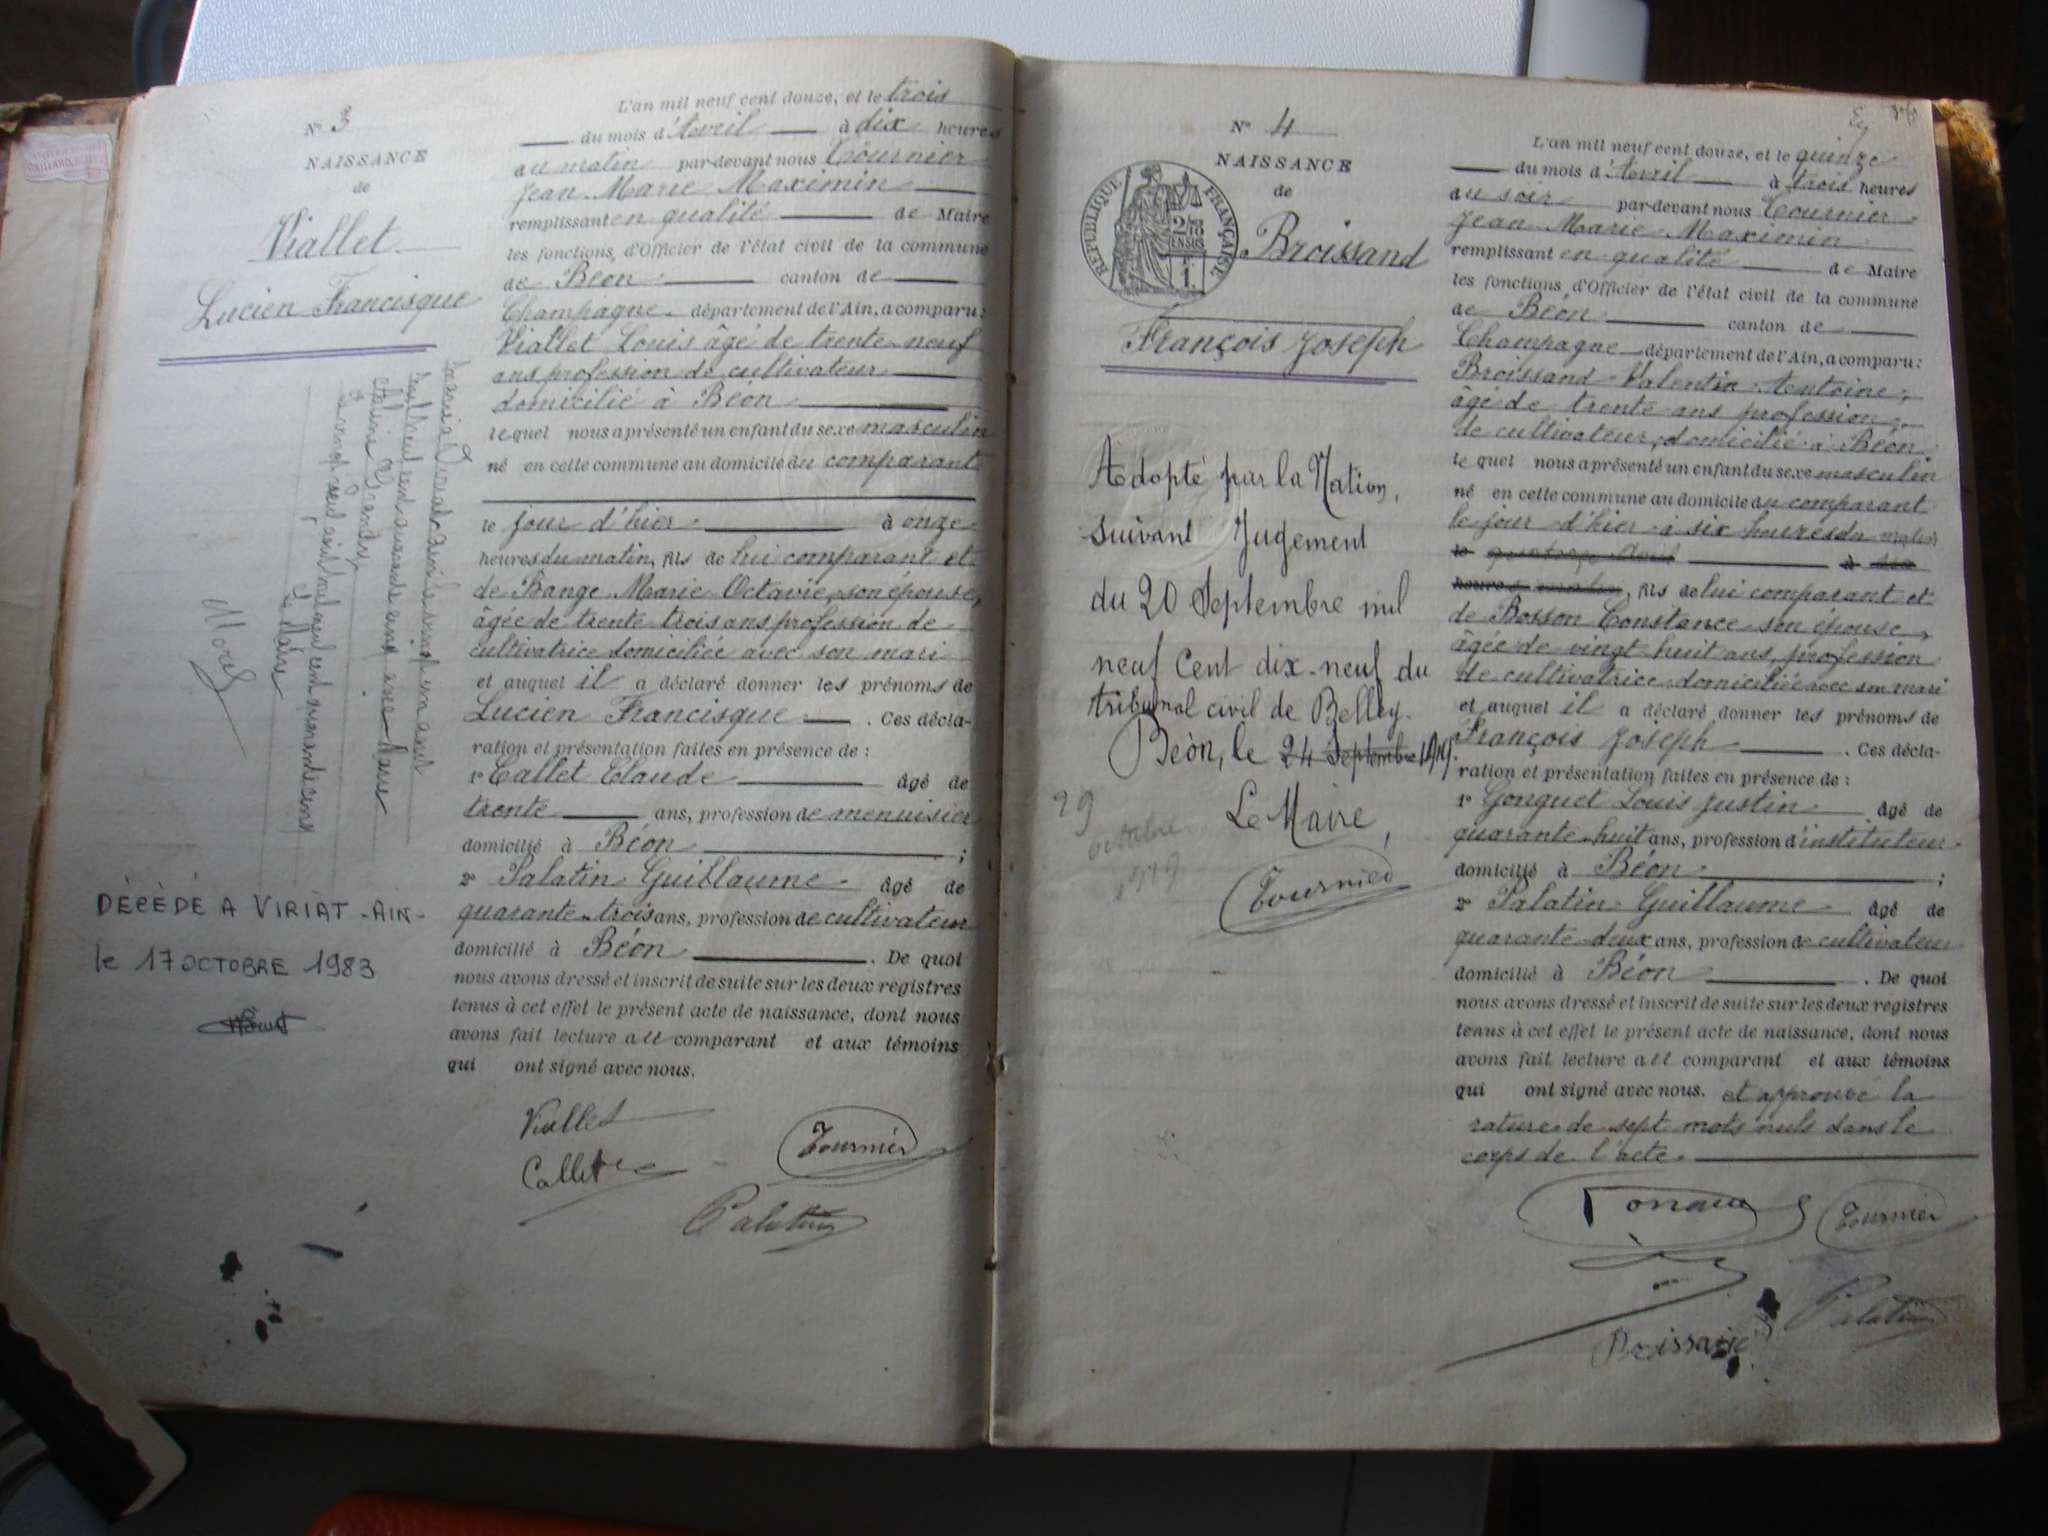 N° 3
NAISSANCE
de
Viallet
Lucien Francisque
L'an mil neuf cent douze, et le trois
du mois d'Avril à dix heures
du matin par-devant nous Tournier
Jean Marie Maximin
remplissant en qualité de Maire
les fonctions d'Officier de l'état civil de la commune
de Béon canton de
Champagne département de l'Ain, a comparu:
Viallet Louis âgé de trente-neuf
ans profession de cultivateur
domicilié à Béon
lequel nous a présenté un enfant du sexe masculin
né en cette commune au domicile du comparant
le jour d'hier à onze
heures du matin, fils de lui comparant et
de Range Marie Octavie, son épouse,
âgée de trente trois ans profession de
cultivatrice domiciliée avec son mari
et auquel il a déclaré donner les prénoms de
Lucien Francisque. Ces décla-
ration et présentation faites en présence de :
1° Callet Claude âgé de
trente ans, profession de menuisier
domicilié à Béon ;
2° Palatin Guillaume âgé de
quarante-trois ans, profession de cultivateur
domicilié à Béon. De quoi
nous avons dressé et inscrit de suite sur les deux registres
tenus à cet effet le présent acte de naissance, dont nous
avons fait lecture au comparant et aux témoins
qui ont signé avec nous.
Viallet
Callet
Tournier
Palatin
août
mil neuf cent quarante cinq avec Marie
Grandy
mil neuf cent quarante cinq
Le Maire
Morel
DÉCÉDÉ A VIRIAT -AIN-
le 17 OCTOBRE 1983
N° 4
NAISSANCE
de
RÉPUBLIQUE FRANÇAISE
Broissand
François Joseph
Adopté par la Nation,
suivant Jugement
du 20 Septembre mil
neuf Cent dix-neuf du
tribunal civil de Belley.
Béon, le 24 Septembre 1919.
29
octobre
1919
Le Maire,
Tournier
L'an mil neuf cent douze, et le quinze
du mois d'Avril à trois heures
du soir par-devant nous Tournier
Jean Marie Maximin
remplissant en qualité de Maire
les fonctions d'Officier de l'état civil de la commune
de Béon canton de
Champagne département de l'Ain, a comparu:
Broissand Valentin Antoine,
âgé de trente ans profession
de cultivateur, domicilié à Béon
lequel nous a présenté un enfant du sexe masculin
né en cette commune au domicile du comparant
le jour d'hier à six heures du matin
le quatorze Avril à six
heures matin, fils de lui comparant et
de Bosson Constance son épouse,
âgée de vingt huit ans, profession
de cultivatrice domiciliée avec son mari
et auquel il a déclaré donner les prénoms de
François Joseph. Ces décla-
ration et présentation faites en présence de :
1° Gonguet Louis Justin âgé de
quarante-huit ans, profession d'instituteur
domicilié à Béon ;
2° Palatin Guillaume âgé de
quarante-deux ans, profession de cultivateur
domicilié à Béon. De quoi
nous avons dressé et inscrit de suite sur les deux registres
tenus à cet effet le présent acte de naissance, dont nous
avons fait lecture au comparant et aux témoins
qui ont signé avec nous. et approuvé la
rature de sept mots nuls dans le
corps de l'acte.
Tournier
Palatin